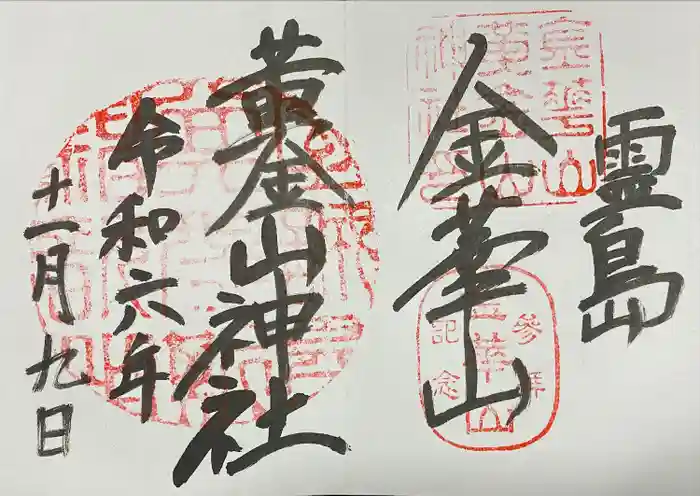 霊島
金華山
黄金山神社
令和六年
十一月九日
金華山
黄金山
神社
参拝
記念
金華山